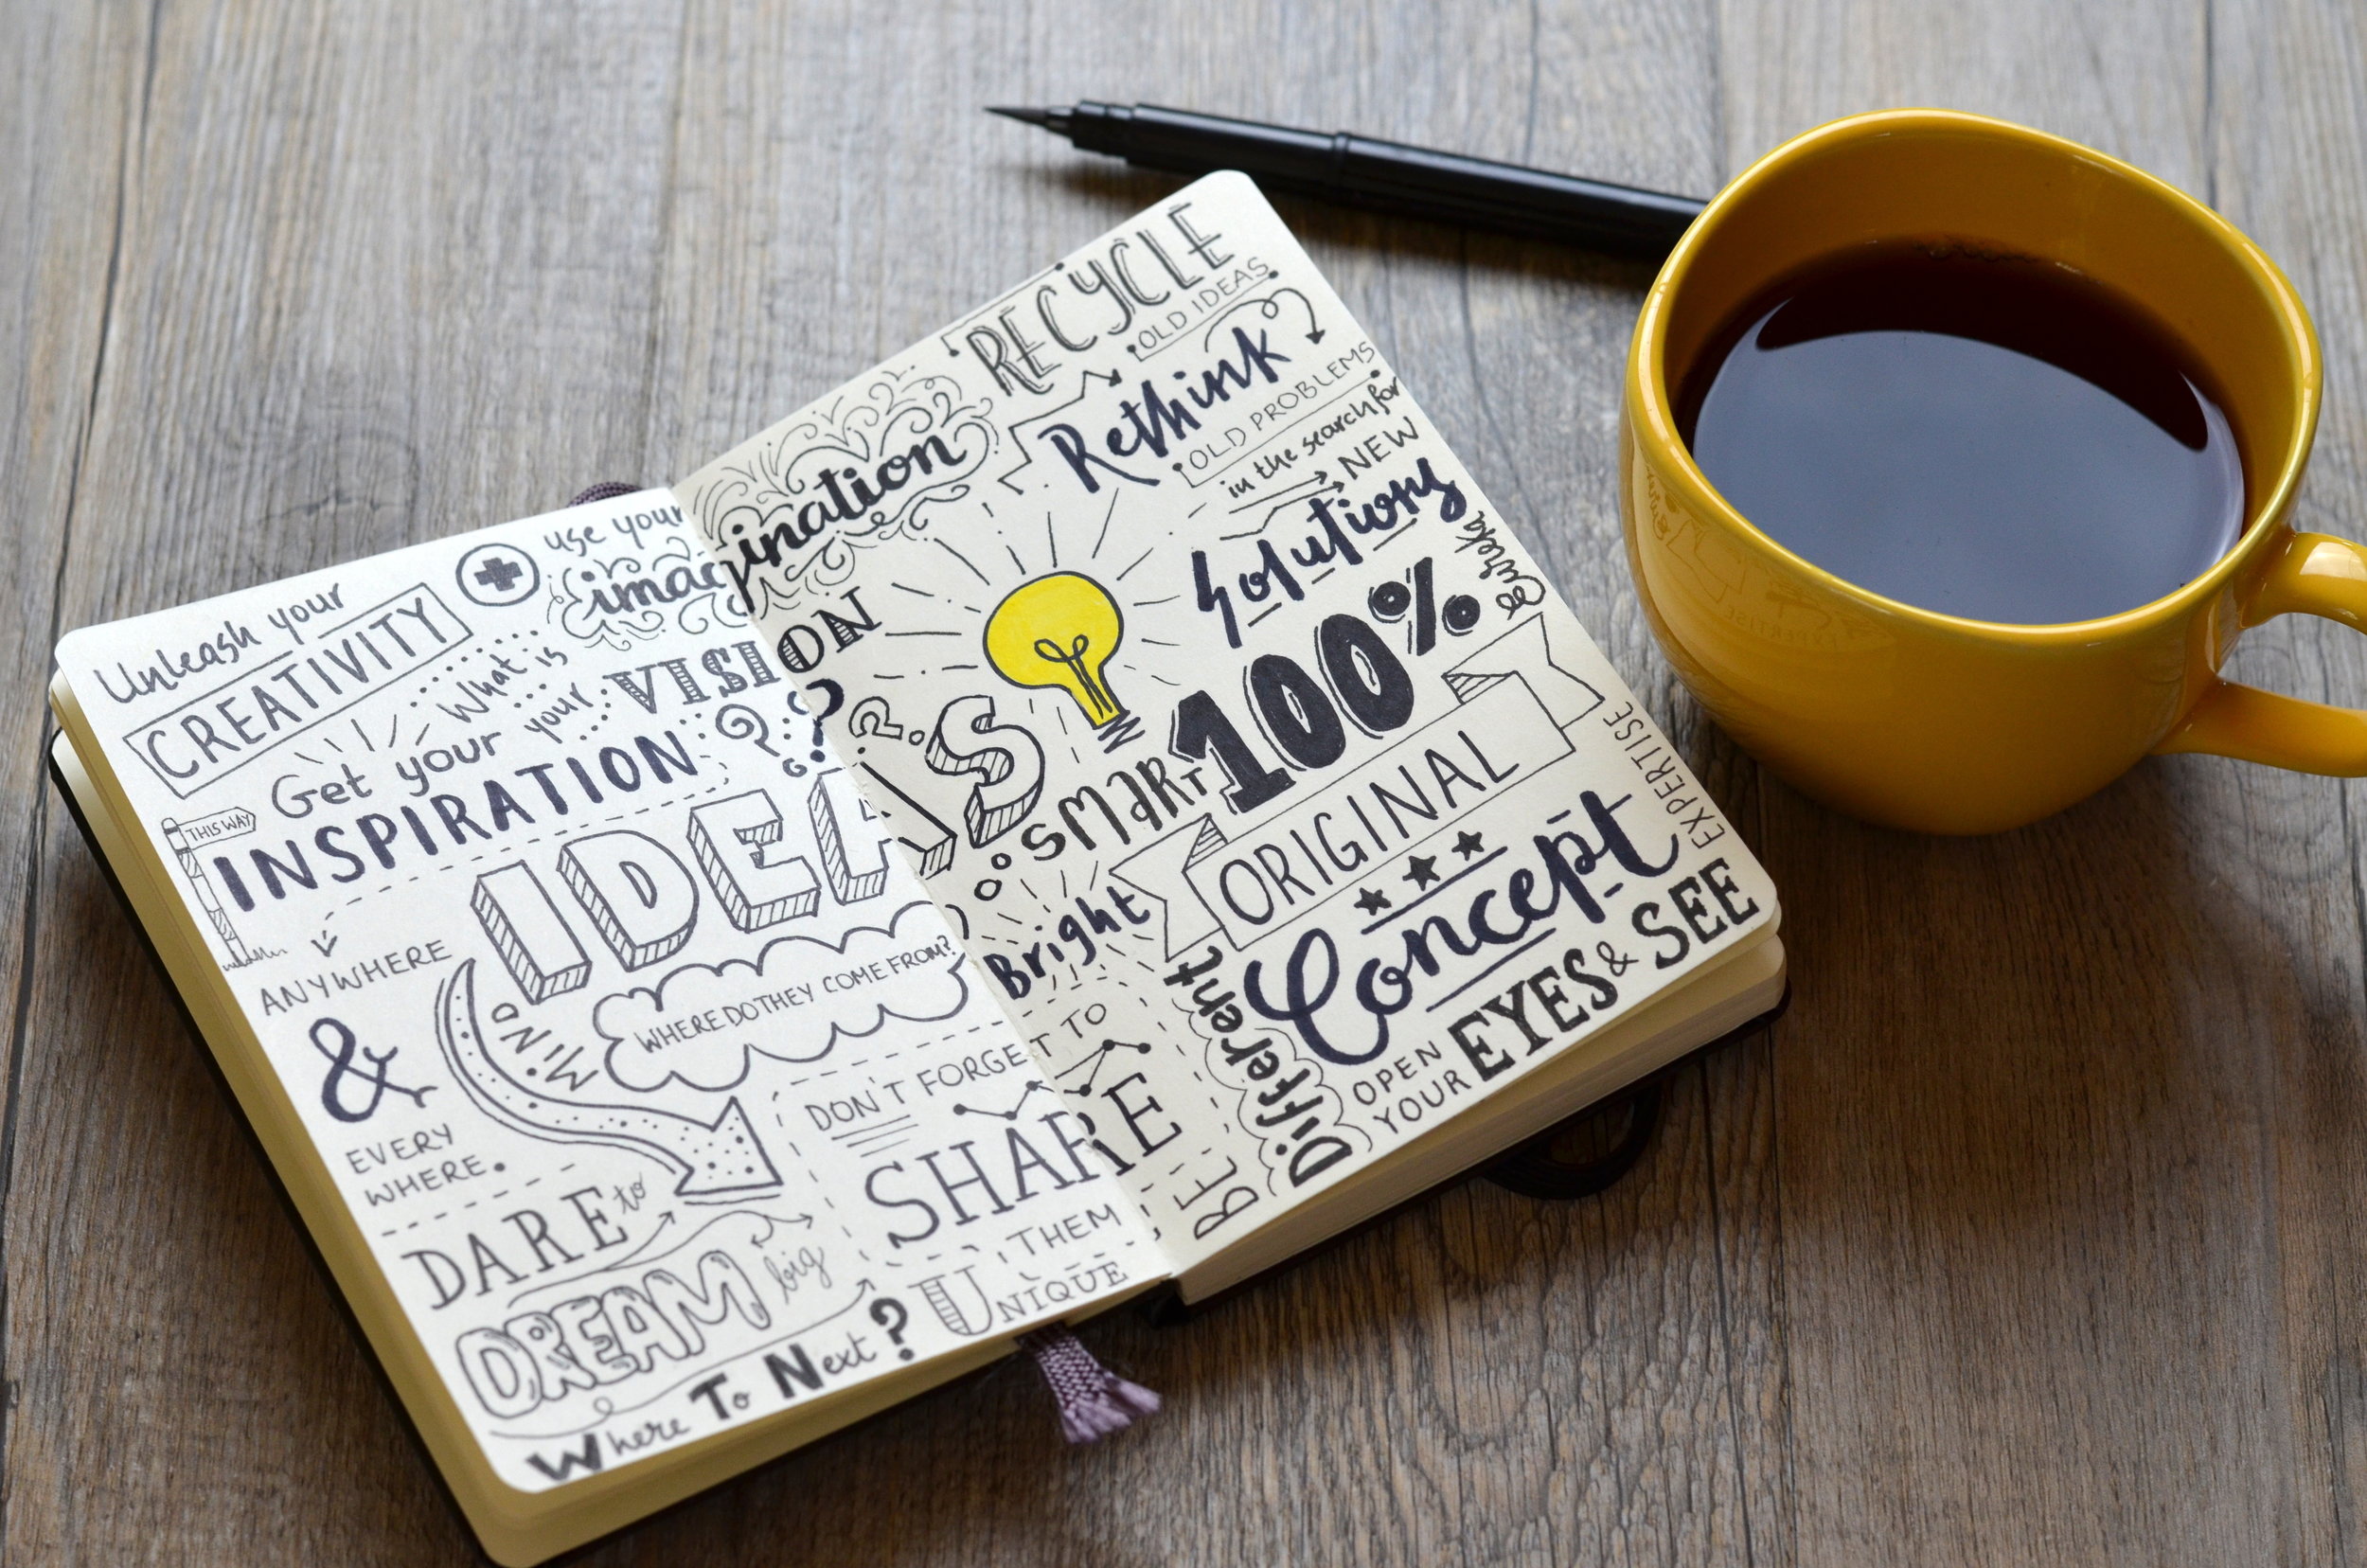 Unleash your
CREATIVITY
use your
imagination
What is
your
VISION
? ?
Get your
INSPIRATION
THIS WAY
ANYWHERE
&
EVERY
WHERE.
IDEAS
MIND
WHERE DO THEY COME FROM?
DON'T FORGET TO
SHARE
THEM
DARE to
DREAM big
Where To Next?
UNIQUE
RECYCLE
OLD IDEAS
Rethink
OLD PROBLEMS
in the search for
NEW
Solutions
Eureka
?
SMART
100%
ORIGINAL
Bright
Concept
EXPERTISE
BE
Different
OPEN
YOUR
EYES & SEE